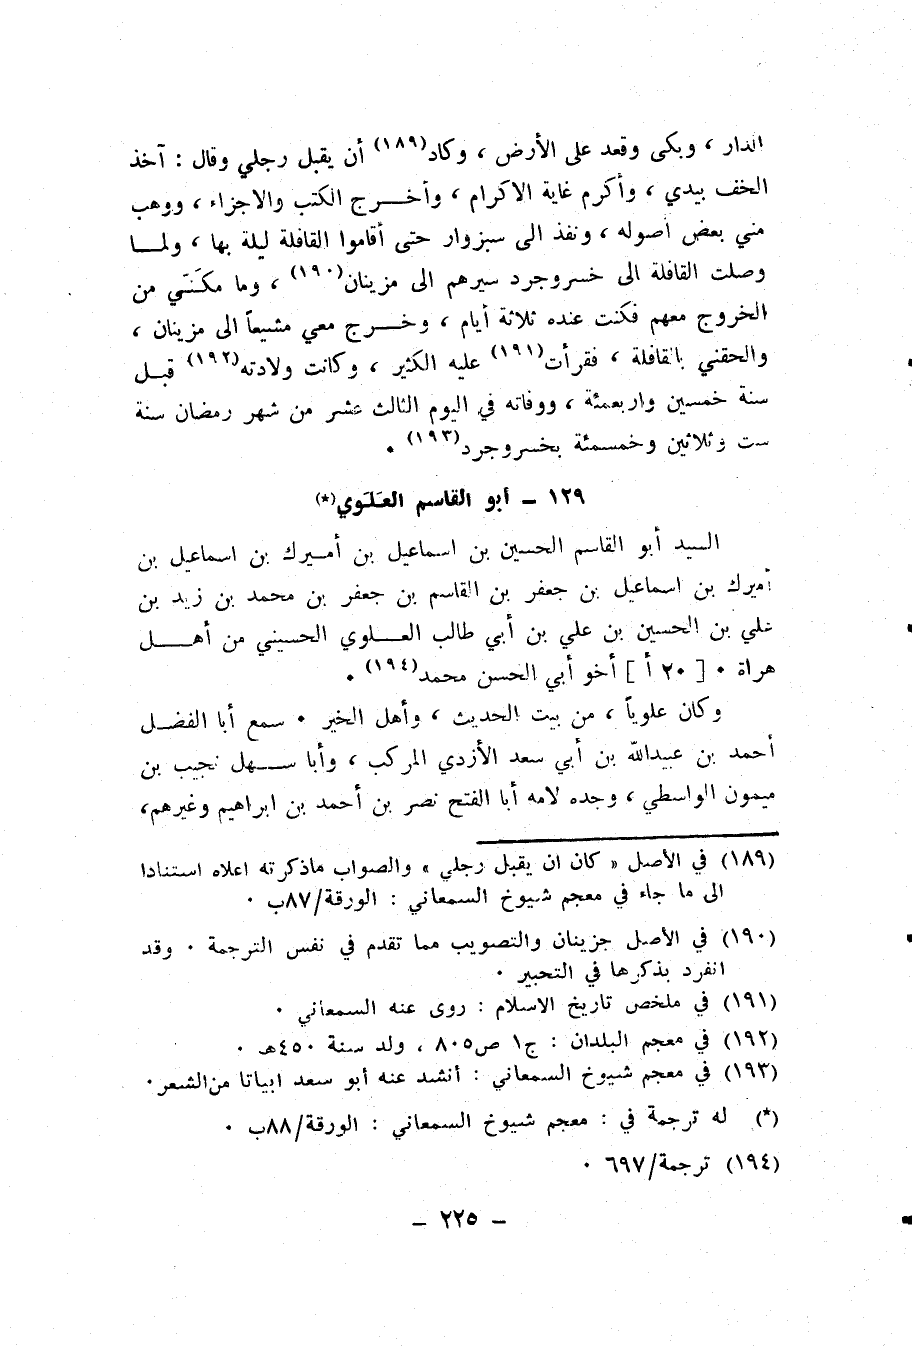 الدار ، وبكى وقعد على الأرض ، وكاد(١٨٩) أن يقبل رجلي وقال : آخذ
الخف بيدي ، وأكرم غاية الاكرام ، وأخـــرج الكتب والاجزاء ، ووهب
مني بعض أصوله ، ونفذ الى سبزوار حتى أقاموا القافلة ليلة بها ، ولمـــا
وصلت القافلة الى خسروجرد سيرهم الى مزينان(١٩٠) ، وما مكنَني من
الخروج معهم فكنت عنده ثلاثة أيام ، وخـــرج معي مشيعاً الى مزينان ،
والحقني بالقافلة ، فقرأت(١٩١) عليه الكثير ، وكانت ولادته(١٩٢) قبـل
سنة خمسين واربعمئة ، ووفاته في اليوم الثالث عشر من شهر رمضان سنة
ست وثلاثين وخمسمئة بخسروجرد(١٩٣) ٠
١٢٩ ــ أبو القاسم العَلَوي(*)
السيد أبو القاسم الحسين بن اسماعيل بن أمـيرك بن اسماعيل بن
أميرك بن اسماعيل بن جعفر بن القاسم بن جعفر بن محمد بن زيد بن
علي بن الحسين بن علي بن أبي طالب العـــلوي الحسيني من أهـــل
هراة ٠ [ ٢٠ أ ] أخو أبي الحسن محمد(١٩٤) ٠
وكان علوياً ، من بيت الحديث ، وأهل الخير ٠ سمع أبا الفضـل
أحمد بن عبيدالله بن أبي سعد الأزدي المركب ، وأبا ســـهل نجيب بن
ميمون الواسطي ، وجده لامه أبا الفتح نصر بن أحمد بن ابراهيم وغيرهم،
(١٨٩) في الأصل « كان ان يقبل رجلي » والصواب ماذكرته اعلاه استنادا
الى ما جاء في معجم شيوخ السمعاني : الورقة/٨٧ب ٠
(١٩٠) في الأصل جزينان والتصويب مما تقدم في نفس الترجمة ٠ وقد
انفرد بذكرها في التحبير ٠
(١٩١) في ملخص تاريخ الاسلام : روى عنه السمعاني ٠
(١٩٢) في معجم البلدان : ج١ ص٨٠٥ ، ولد سنة ٤٥٠هـ ٠
(١٩٣) في معجم شيوخ السمعاني : أنشد عنه أبو سعد ابياتا من الشعر ٠
(*) له ترجمة في : معجم شيوخ السمعاني : الورقة/٨٨ب ٠
(١٩٤) ترجمة/٦٩٧ ٠
ــ ٢٢٥ ــ